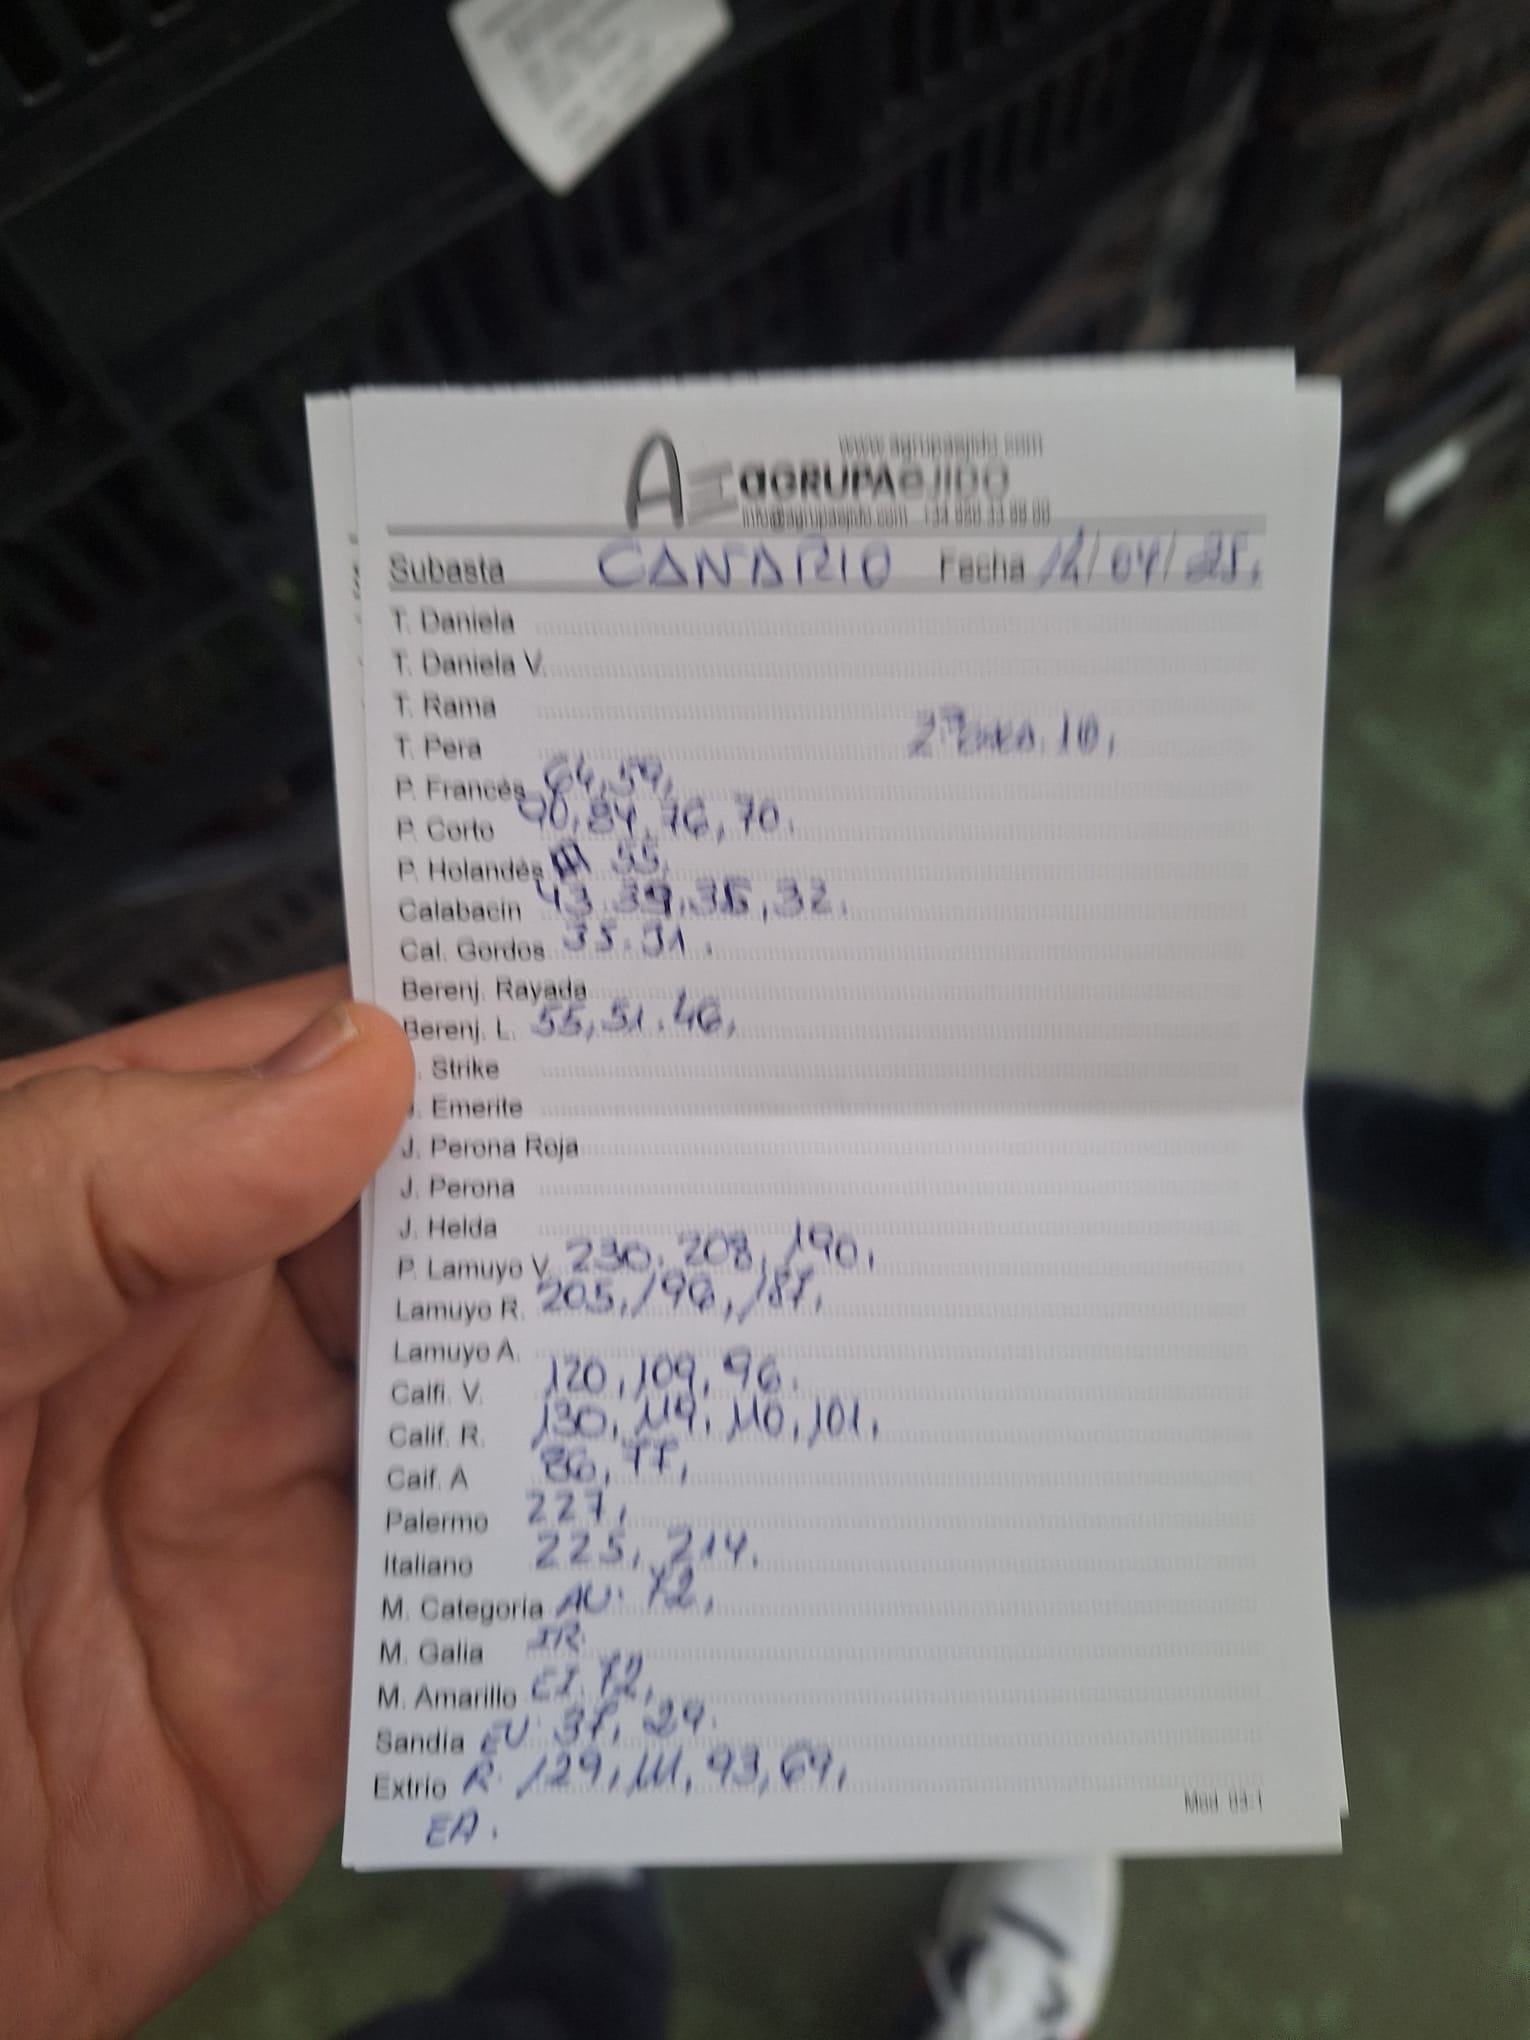 www.agrupaejido.com
AGRUPAEJIDO
info@agrupaejido.com +34 950 33 99 00
Subasta CANARIO Fecha 14/04/25.
T. Daniela
T. Daniela V.
T. Rama
T. Pera 10.
P. Francés 64, 59,
P. Corto 90, 84, 76, 70.
P. Holandés 55.
Calabacín 43, 39, 35, 32.
Cal. Gordos 35. 31.
Berenj. Rayada
Berenj. L. 55, 51. 46.
. Strike
J. Emerite
J. Perona Roja
J. Perona
J. Helda
P. Lamuyo V. 230. 208, 190,
Lamuyo R. 205, 196, 187,
Lamuyo A.
Calfi. V. 120, 109, 96.
Calif. R. 130, 119, 110, 101,
Caif. A 86, 77,
Palermo 227,
Italiano 225, 214.
M. Categoría AU. 72,
M. Galia IR.
M. Amarillo EI. 72,
Sandía EV. 37, 29.
Extrio R. 129, 111, 93, 69,
EA.
Mod. 03-1